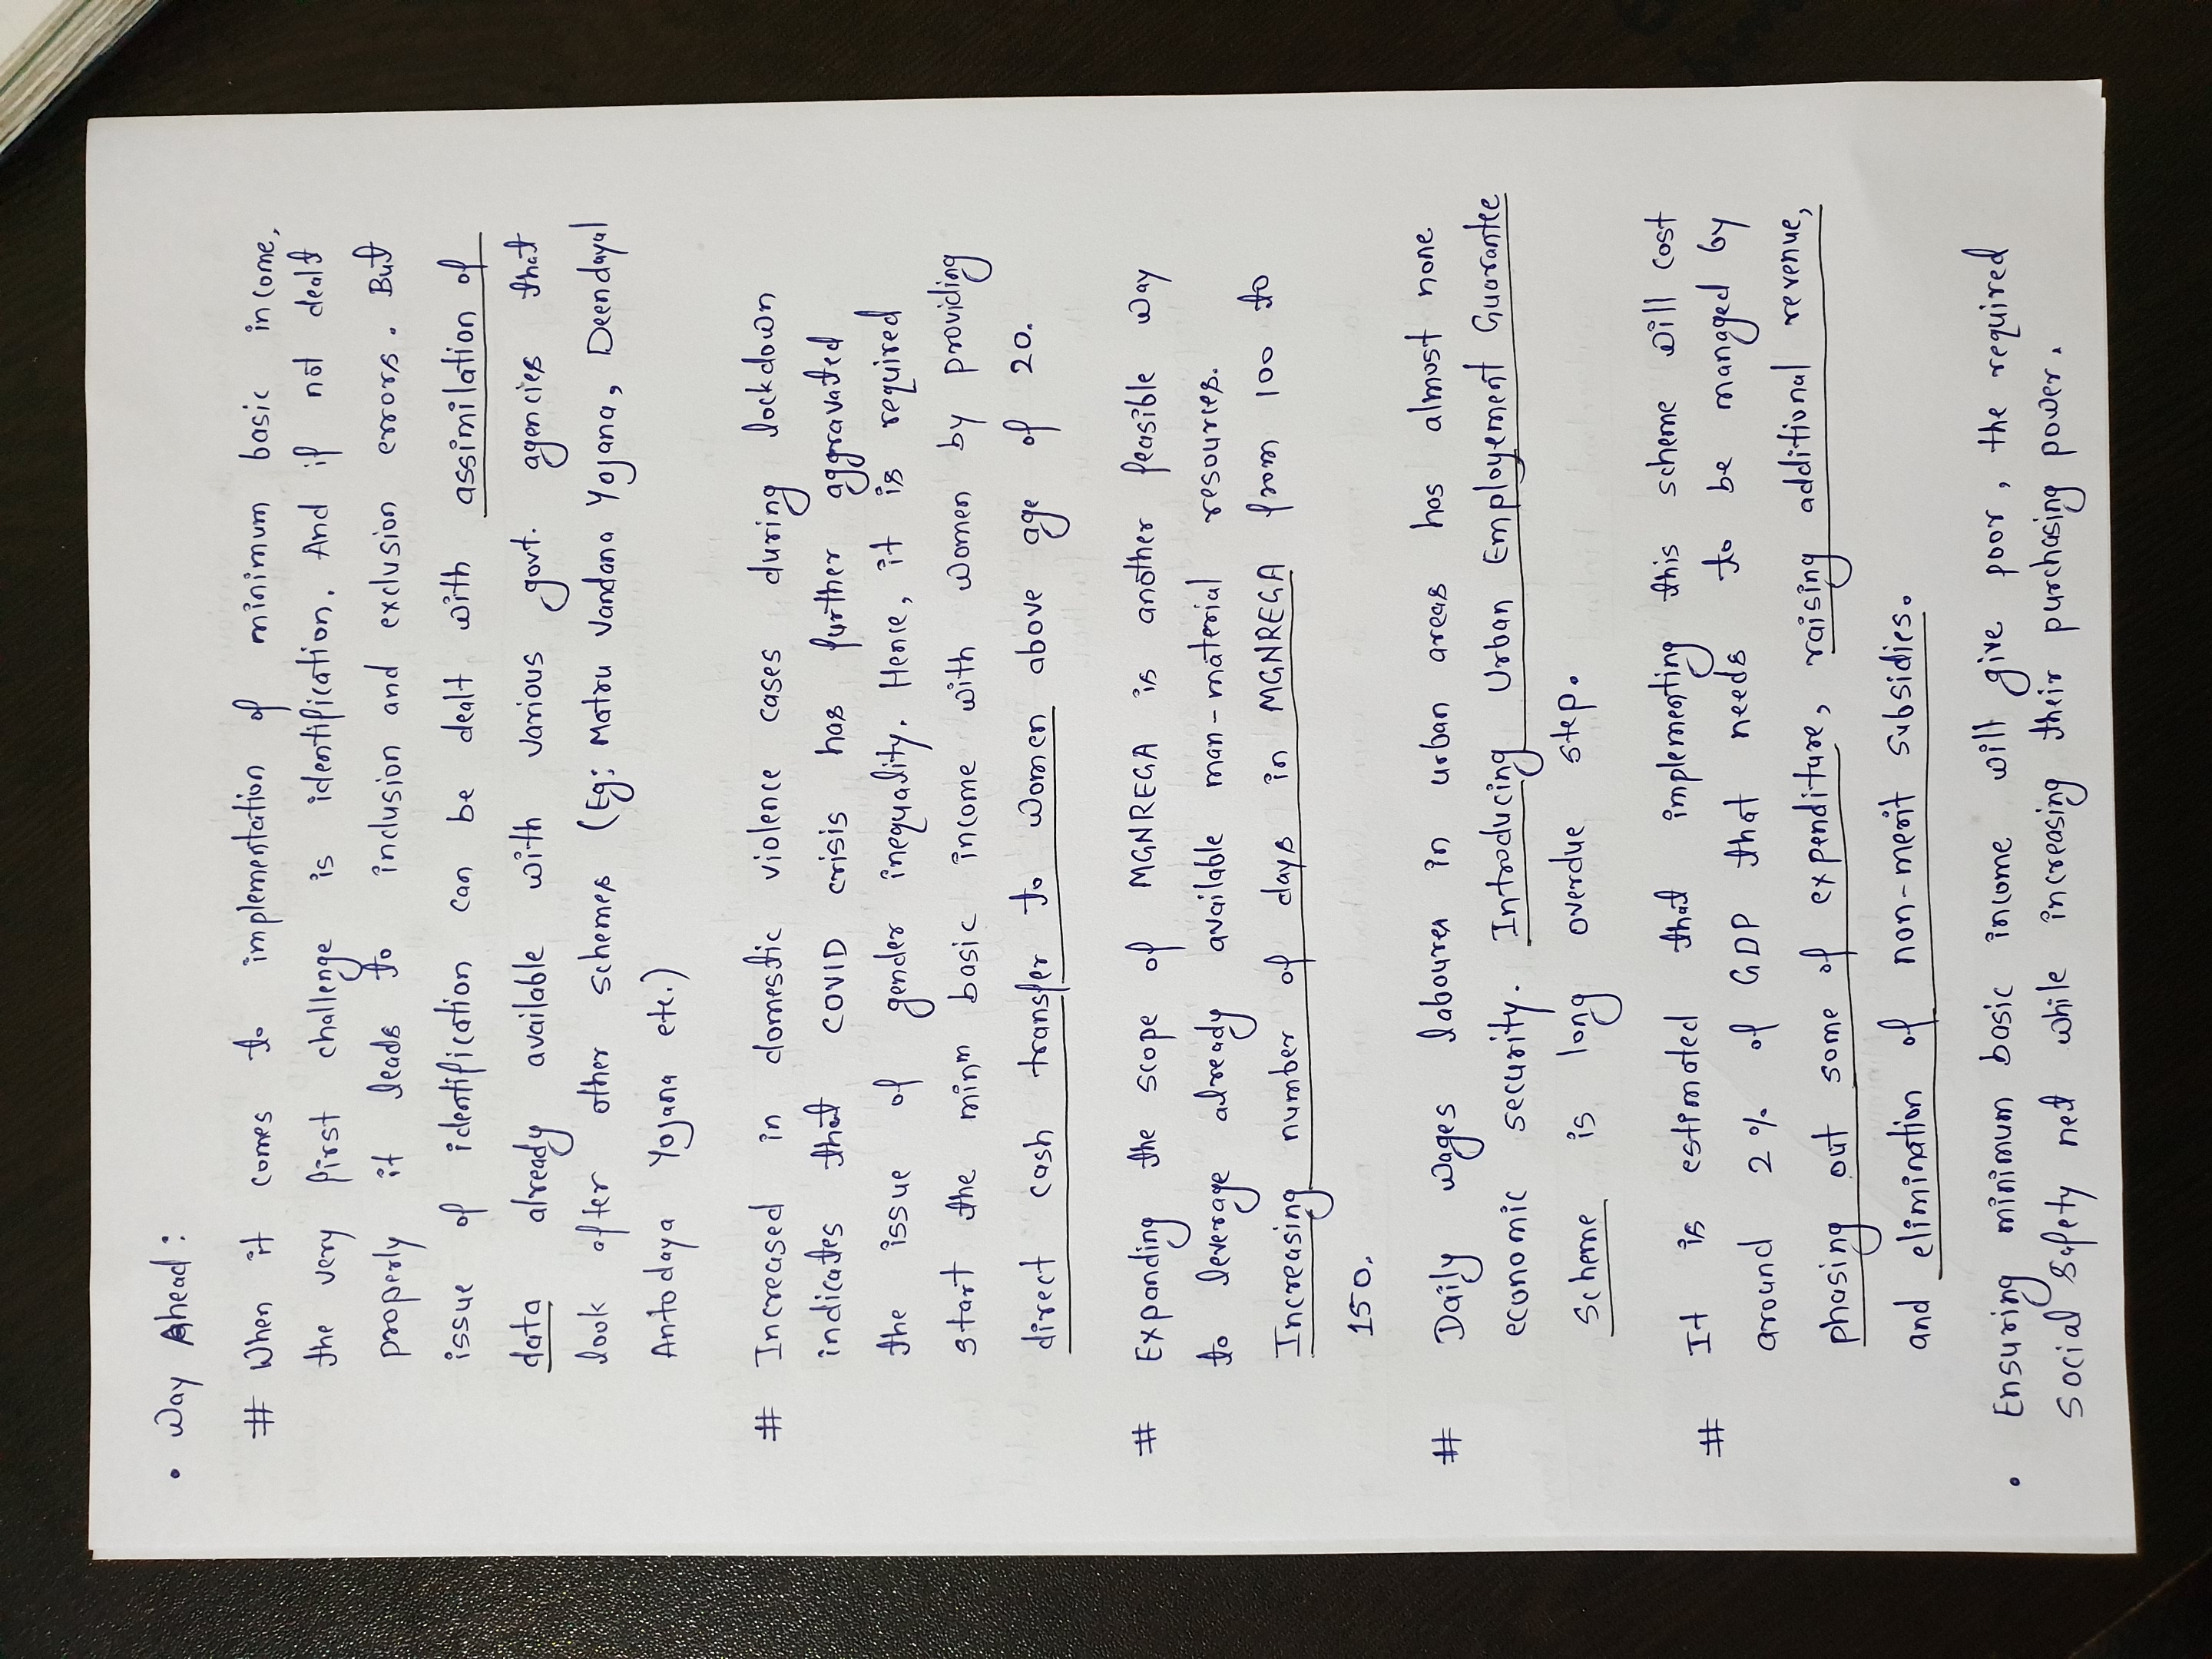 • Way Ahead:
# When it comes to implementation of minimum basic income,
the very first challenge is identification. And if not dealt
properly it leads to inclusion and exclusion errors. But
issue of identification can be dealt with assimilation of
data already available with various govt. agencies that
look after other schemes (Eg: Matru Vandana Yojana, Deendayal
Antodaya Yojana etc.)
# Increased in domestic violence cases during lockdown
indicates that COVID crisis has further aggravated
the issue of gender inequality. Hence, it is required
start the minm basic income with women by providing
direct cash transfer to women above age of 20.
# Expanding the scope of MGNREGA is another feasible way
to leverage already available man-material resources.
Increasing number of days in MGNREGA from 100 to
150.
# Daily wages labourer in urban areas has almost none
economic security. Introducing Urban Employement Guarantee
Scheme is long overdue step.
# It is estimated that implementing this scheme will cost
around 2% of GDP that needs to be managed by
phasing out some of expenditure, raising additional revenue,
and elimination of non-merit subsidies.
• Ensuring minimum basic income will give poor, the required
social safety net while increasing their purchasing power.